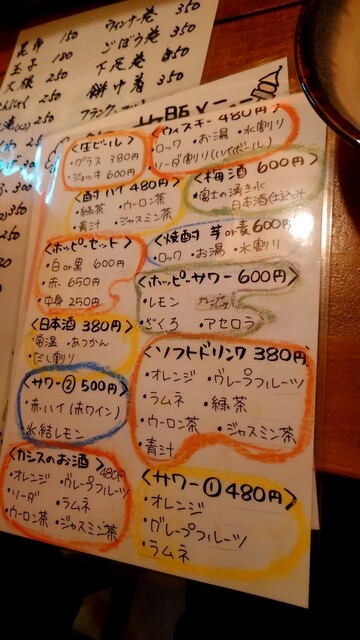 昆布 150
玉子 180
大根 250
ウィンナー巻 350
ごぼう巻 350
下足巻 350
餅巾着 350
<生ビール>
・グラス 380円
・ジョッキ 600円
<ウィスキー 480円>
・ロック ・お湯 ・水割り
・ソーダ割り(ハイボール)
<酎ハイ 480円>
・緑茶 ・ウーロン茶
・青汁 ・ジャスミン茶
<梅酒 600円>
・富士の湧き水
・日本酒仕込み
<ホッピーセット>
・白or黒 600円
・赤 650円
・中身 250円
<焼酎 芋or麦 600円>
・ロック ・お湯 ・水割り
<ホッピーサワー 600円>
・レモン
・ざくろ ・アセロラ
<日本酒 380円>
・常温 ・あつかん
・だし割り
<ソフトドリンク 380円>
・オレンジ ・グレープフルーツ
・ラムネ ・緑茶
・ウーロン茶 ・ジャスミン茶
・青汁
<サワー② 500円>
・赤ハイ(赤ワイン)
・氷結レモン
<カシスのお酒> 480円
・オレンジ ・グレープフルーツ
・ソーダ ・ラムネ
・ウーロン茶 ・ジャスミン茶
<サワー① 480円>
・オレンジ
・グレープフルーツ
・ラムネ